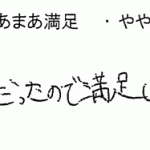 あまあ満足 ・やや
だったので満足し